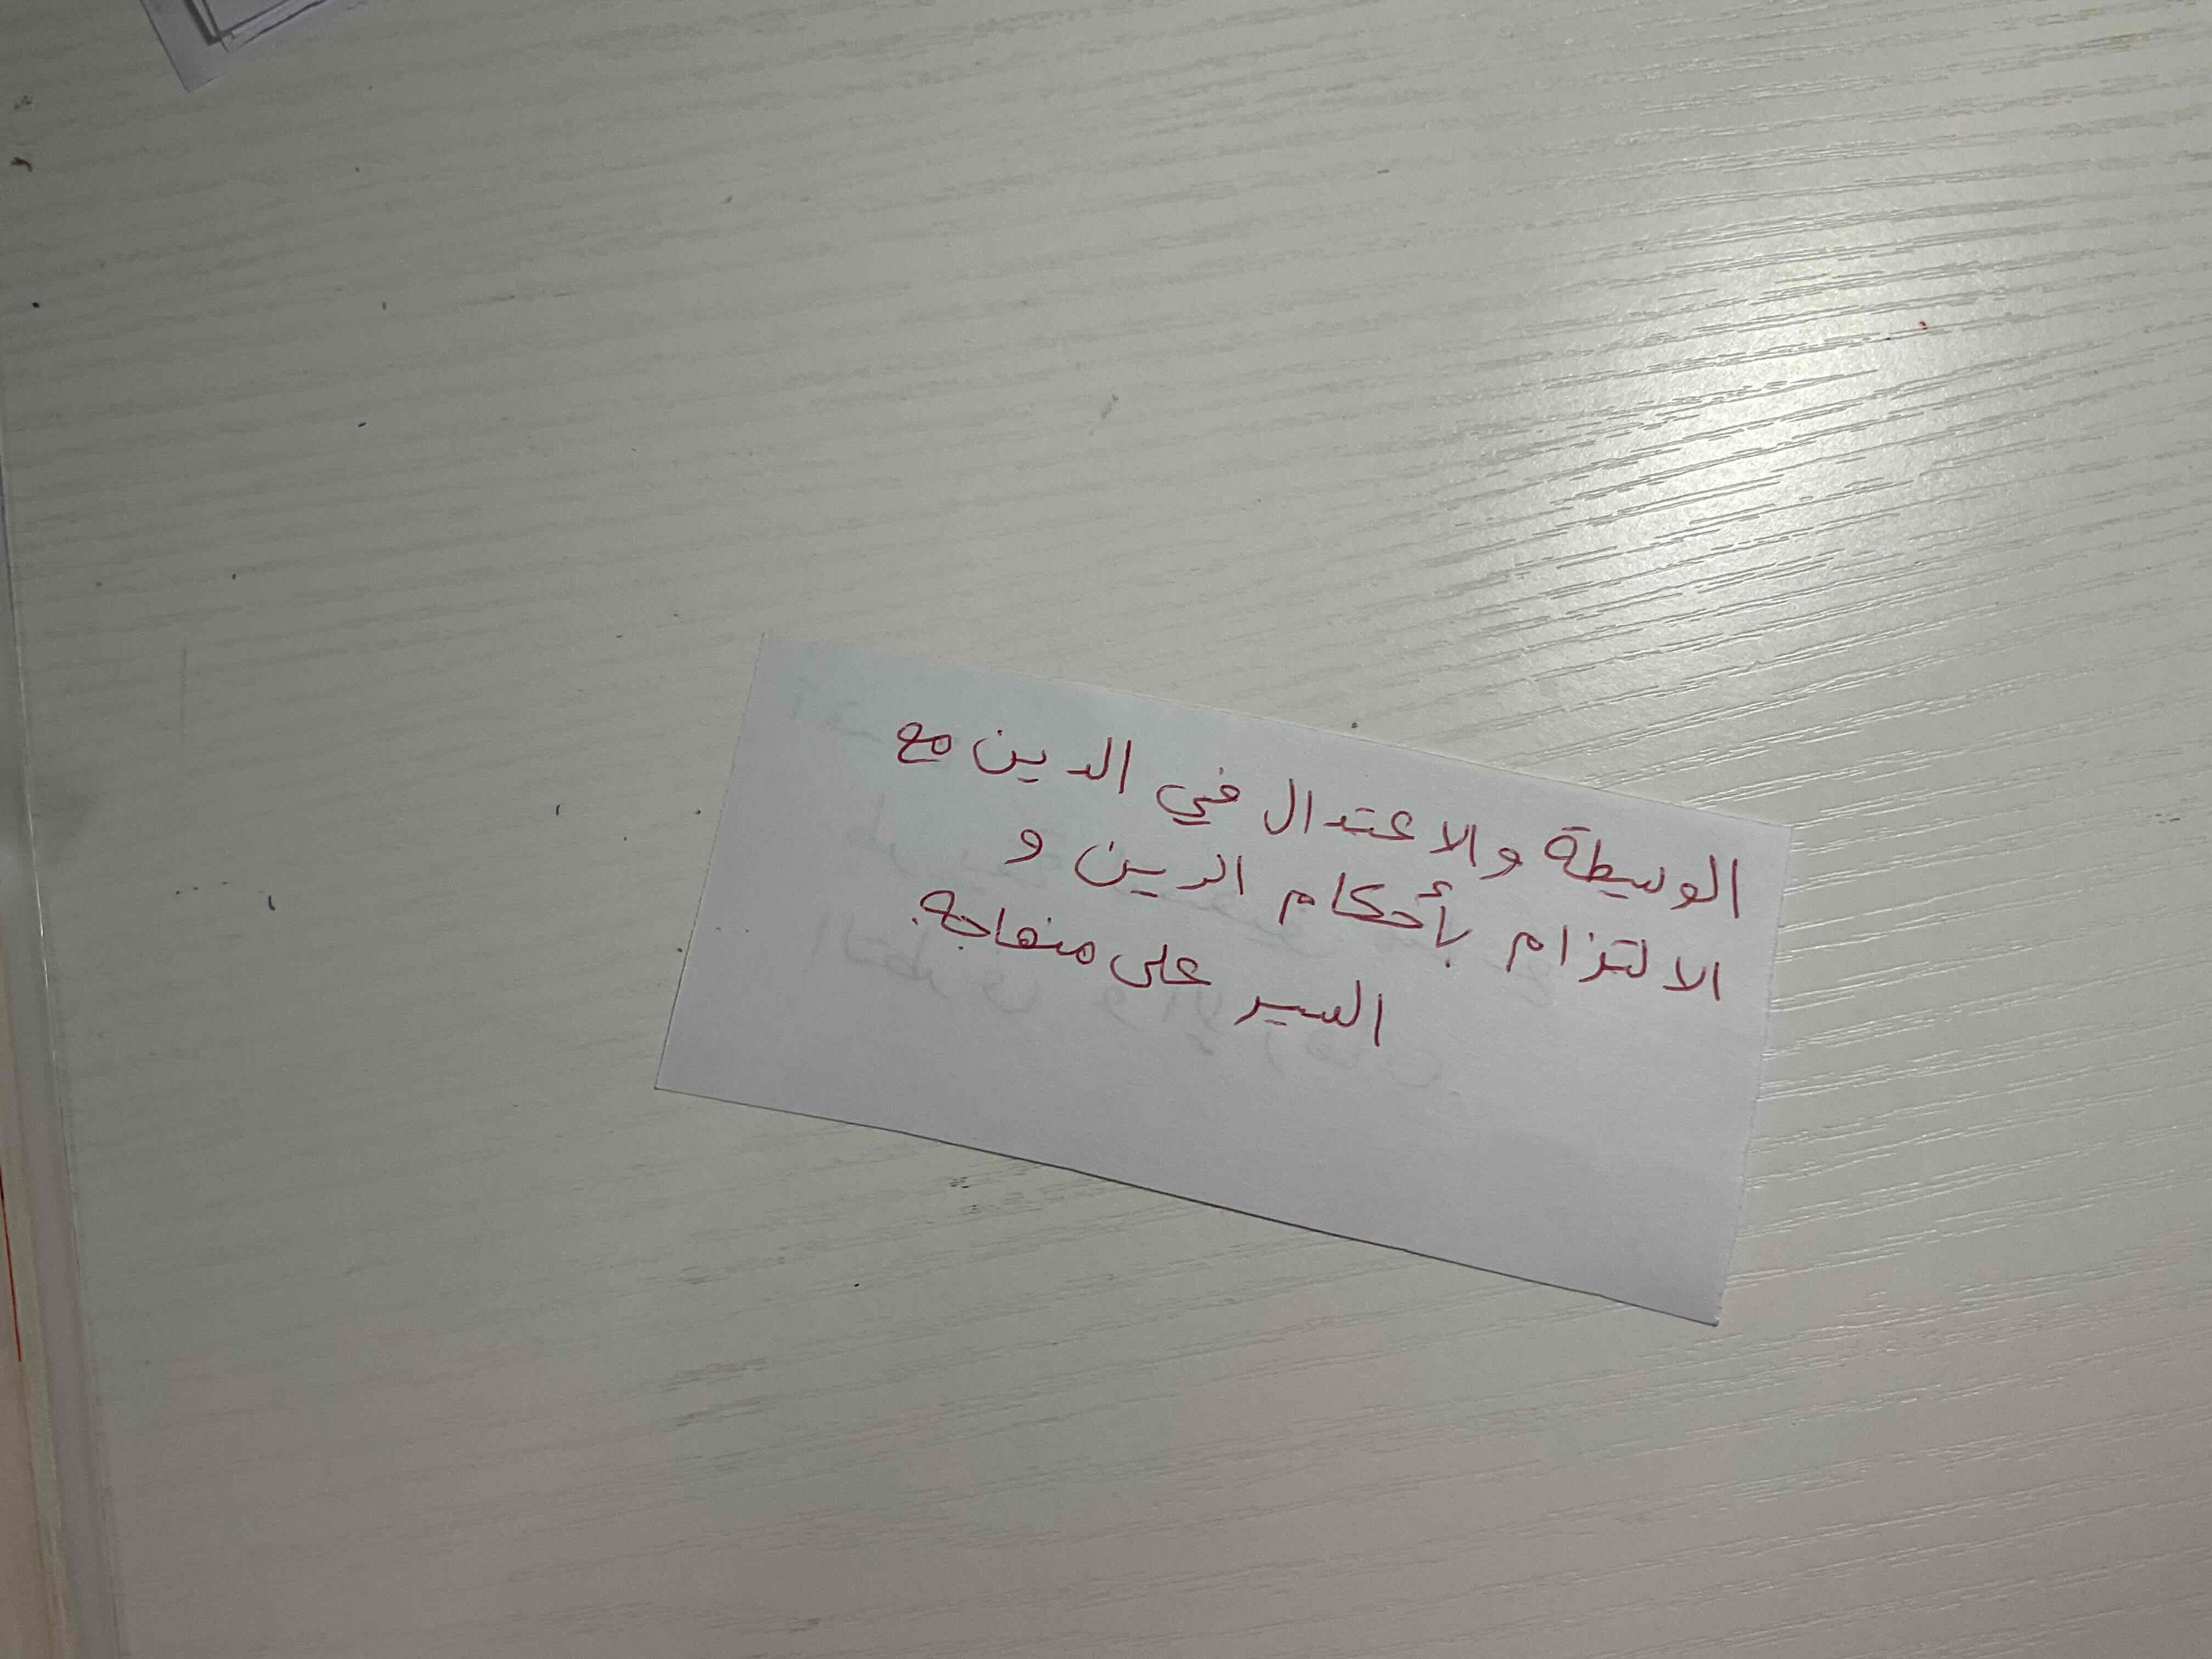 الوسيطة والاعتدال في الدين مع
الالتزام بأحكام الدين و
السير على منهاجه.